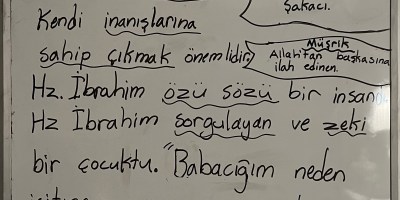 Şakacı.
Kendi inanışlarına
sahip çıkmak önemlidir.
Müşrik
Allah'tan başkasına
ilah edinen.
Hz. İbrahim özü sözü bir insan
Hz İbrahim sorgulayan ve zeki
bir çocuktu. "Babacığım neden